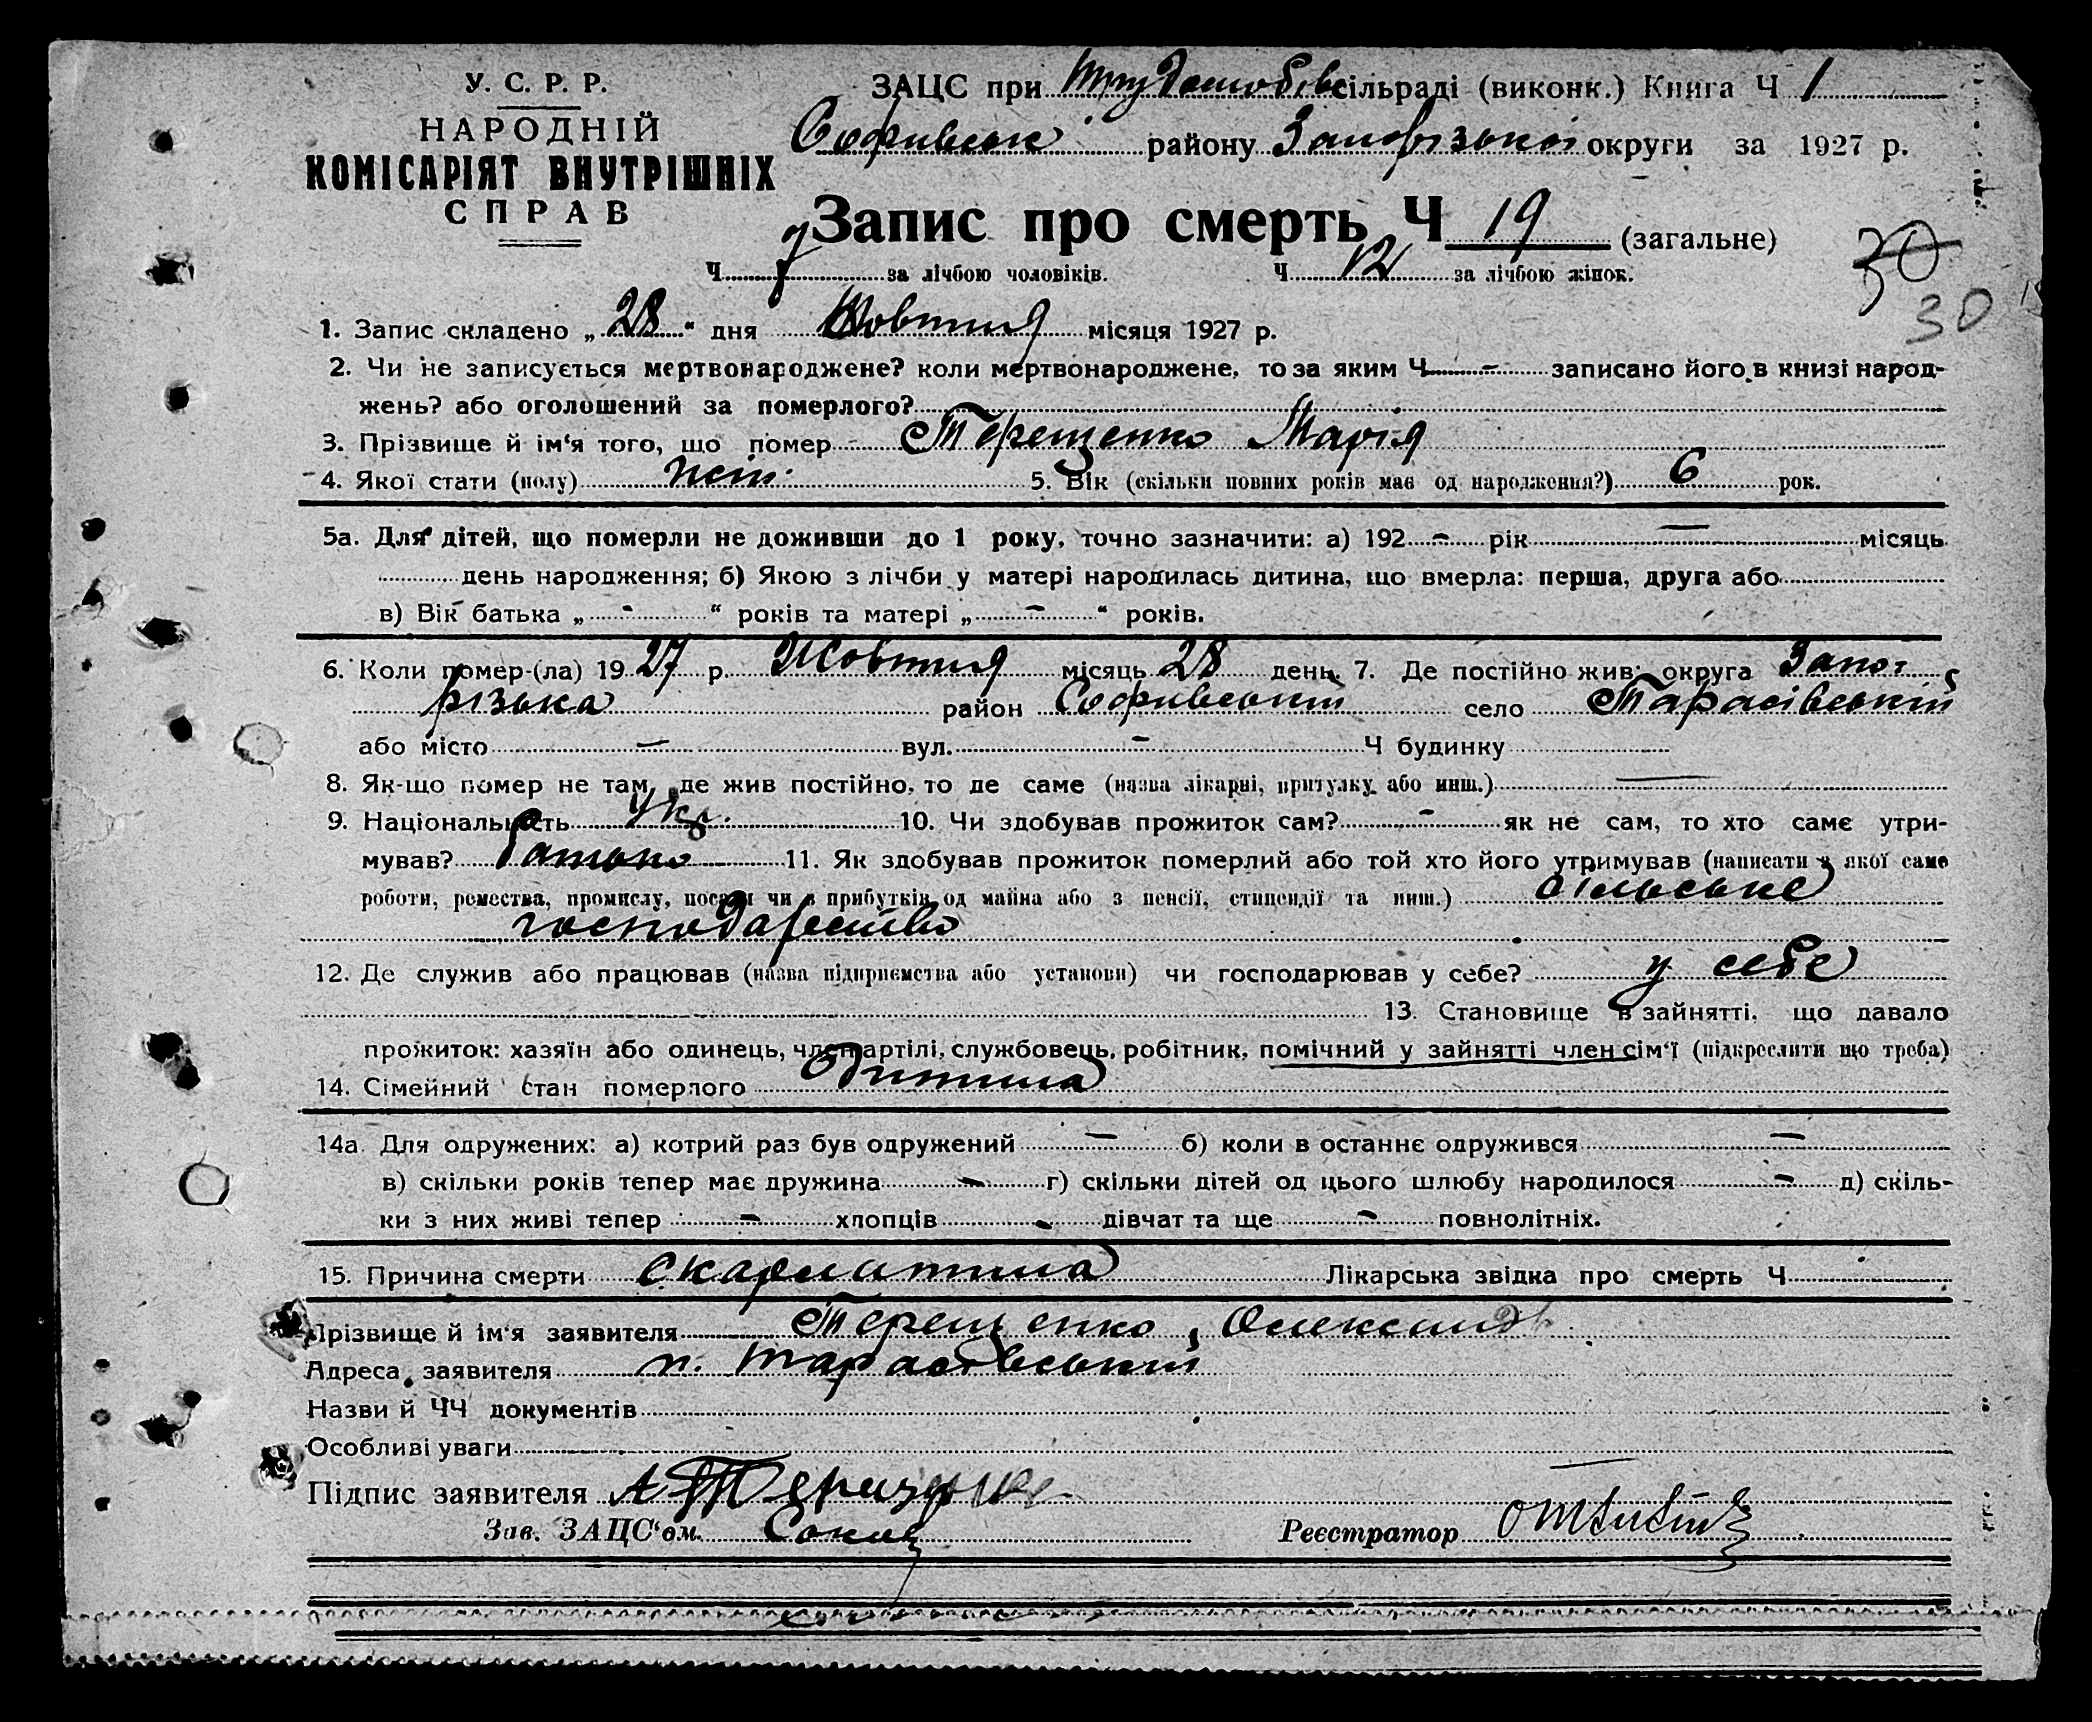 У. С. Р. Р.
НАРОДНІЙ
КОМІСАРІЯТ ВНУТРІШНІХ
СПРАВ
ЗАЦС при сільраді (виконк.) Книга Ч 1
Софиївськ району Запорізької округи за 1927 р.
Запис про смерть Ч 19 (загальне)
Ч 7 за лічбою чоловіків. Ч 12 за лічбою жінок.
30
30
1. Запис складено „ 28 “ дня Жовтня місяця 1927 р.
2. Чи не записується мертвонароджене? коли мертвонароджене, то за яким Ч — записано його в книзі народ-
жень? або оголошений за померлого?
3. Прізвище й ім‘я того, що помер Терещенко Марія
4. Якої стати (полу) жін. 5. Вік (скільки повних років має од народження?) 6 рок.
5а. Для дітей, що померли не доживши до 1 року, точно зазначити: а) 192 - рік — місяць
день народження; б) Якою з лічби у матері народилась дитина, що вмерла: перша, друга або
в) Вік батька „ - “ років та матері „ - “ років.
6. Коли помер-(ла) 19 27 р. Жовтня місяць 28 день. 7. Де постійно жив: округа Запо-
різька район Софиївський село Тарасівський
або місто — вул. - Ч будинку
8. Як-що помер не там, де жив постійно, то де саме (назва лікарні, притулку або инш.) —
9. Національність Укр. 10. Чи здобував прожиток сам? - як не сам, то хто саме утри-
мував? Батько 11. Як здобував прожиток померлий або той хто його утримував (написати з якої саме
роботи, ремества, промислу, посади чи з прибутків од майна або з пенсії, стипендії та инш.) сільське
господарство
12. Де служив або працював (назва підприємства або установи) чи господарював у себе? у себе
13. Становище в зайнятті, що давало
прожиток: хазяїн або одинець, член артілі, службовець, робітник, помічний у зайнятті член сім‘ї (підкреслити що треба)
14. Сімейний стан померлого Дитина
14а. Для одружених: а) котрий раз був одружений — б) коли в останнє одружився —
в) скільки років тепер має дружина - г) скільки дітей од цього шлюбу народилося - д) скіль-
ки з них живі тепер - хлопців - дівчат та ще - повнолітніх.
15. Причина смерти Скарлатина Лікарська звідка про смерть Ч
Прізвище й ім‘я заявителя Терещенко Олександ
Адреса заявителя п. Тарасівський
Назви й ЧЧ документів
Особливі уваги
Підпис заявителя
Зав. ЗАЦС‘ом
Реєстратор